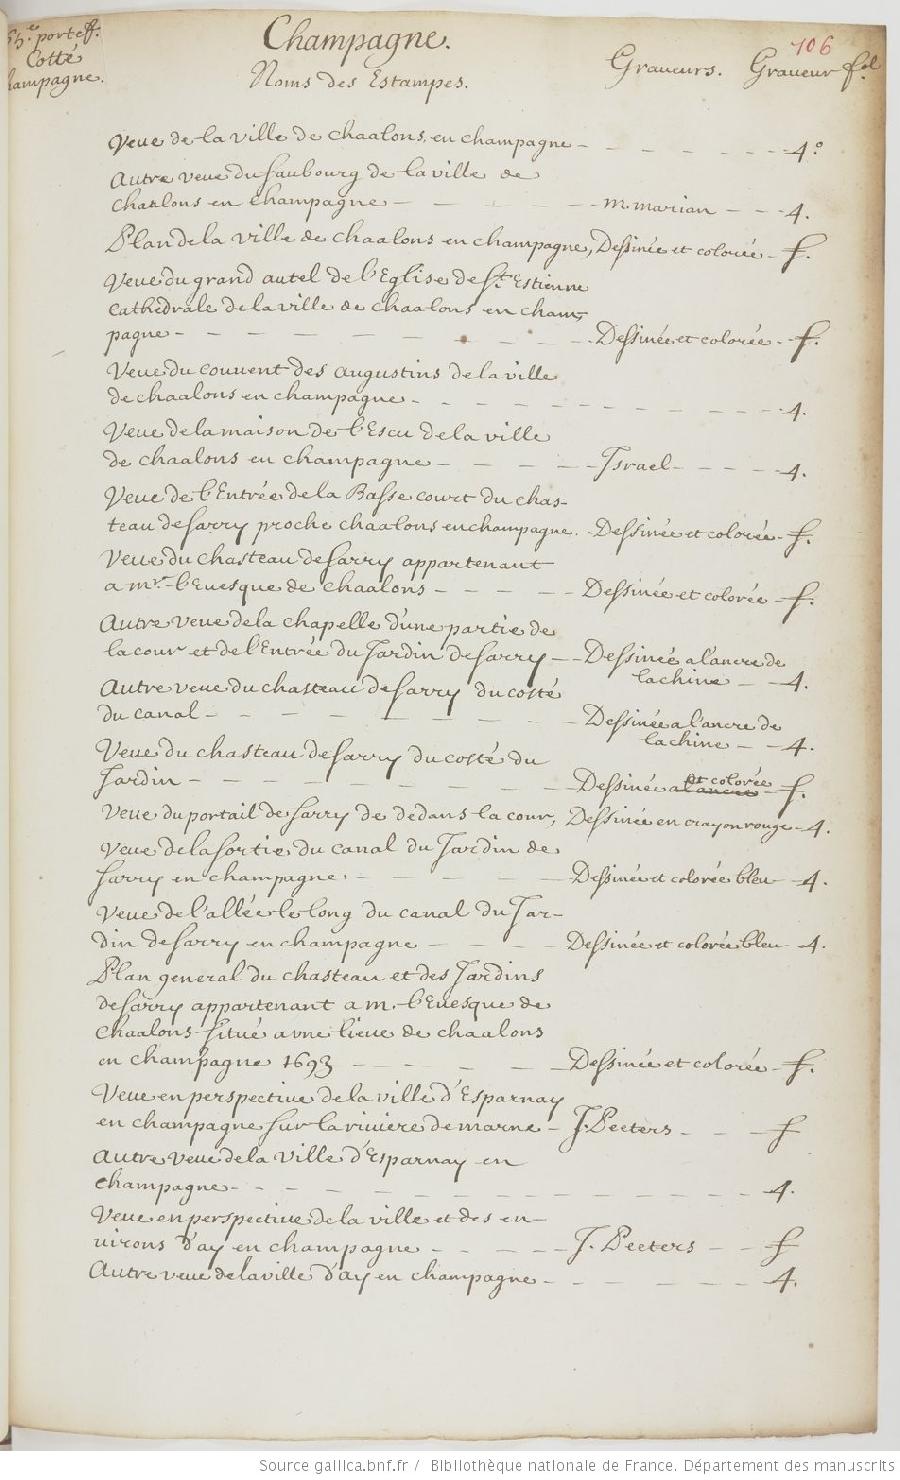 5h.e portef.
Cotté
hampagne.
Champagne.
106
Noms des Estampes.
Graveurs. Graveur fol
Veue de la ville de chaalons, en champagne - - - - - - - 4.o
Autre veue du faubourg de la ville de
chaalons en champagne - - - - - m. marian - - - 4.
Plan de la ville de chaalons en champagne, Dessinée et colorée - f.
Veue du grand autel de l'Eglise de St. Estienne
cathedrale de la ville de chaalons en cham-
pagne - - - - - - - - - Dessinée et colorée - f.
Veue du couvent des augustins de la ville
de chaalons en champagne - - - - - - - - - - 4.
Veue de la maison de l'Escu de la ville
de chaalons en champagne - - - - Israel - - - - - 4.
Veue de l'Entrée de la Basse court du chas-
teau de sarry proche chaalons en champagne. Dessinée et colorée - f.
Veue du chasteau de sarry appartenant
a mr. l'evesque de chaalons - - - - - Dessinée et colorée - f.
Autre veue de la chapelle d'une partie de
la cour et de l'Entrée du Jardin de sarry - - Dessinée a l'ancre de
la chine - - 4.
Autre veue du chasteau de sarry du costé
du canal - - - - - - - - - Dessinée a l'ancre de
la chine - - 4.
Veue du chasteau de sarry du costé du
Jardin - - - - - - - - Dessinée a l'ancre et colorée - f.
Veue du portail de sarry de dedans la cour, Dessinée en crayon rouge - 4.
Veue de la sortie du canal du Jardin de
sarry en champagne - - - - - Dessinée et colorée bleu - 4.
Veue de l'allée le long du canal du Jar-
din de sarry en champagne - - - - Dessinée et colorée bleu - 4.
Plan general du chasteau et des Jardins
de sarry appartenant a m. l'evesque de
chaalons situé a vne lieue de chaalons
en champagne 1693 - - - - - Dessinée et colorée - f.
Veue en perspective de la ville d'Esparnay
en champagne sur la riviere de marne - J. Peeters - - - f
Autre veue de la ville d'Esparnay en
champagne - - - - - - - - - - - - 4.
Veue en perspective de la ville et des en-
virons d'ay en champagne - - - - - J. Peeters - - f
Autre veue de la ville d'ay en champagne - - - - - - 4.
Source gallica.bnf.fr / Bibliothèque nationale de France. Département des manuscrits